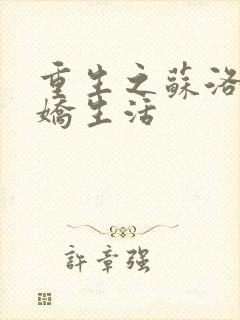 重生之蘇洛
嬌生活
許章强